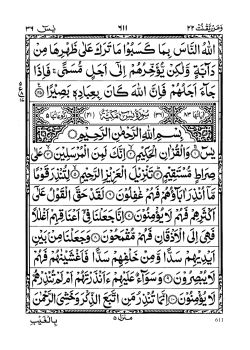 وَمَنْ يَّقْنُتْ ٢٢ ٦١١ يٰسٓ ٣٦
اللّٰهُ النَّاسَ بِمَا كَسَبُوْا مَا تَرَكَ عَلٰى ظَهْرِهَا مِنْ
دَآبَّةٍ وَّلٰكِنْ يُّؤَخِّرُهُمْ اِلٰٓى اَجَلٍ مُّسَمًّى ۚ فَاِذَا
جَآءَ اَجَلُهُمْ فَاِنَّ اللّٰهَ كَانَ بِعِبَادِهٖ بَصِيْرًا
بِسْمِ اللّٰهِ الرَّحْمٰنِ الرَّحِيْمِ
يٰسٓ وَالْقُرْاٰنِ الْحَكِيْمِ اِنَّكَ لَمِنَ الْمُرْسَلِيْنَ عَلٰى
صِرَاطٍ مُّسْتَقِيْمٍ تَنْزِيْلَ الْعَزِيْزِ الرَّحِيْمِ لِتُنْذِرَ قَوْمًا
مَّآ اُنْذِرَ اٰبَآؤُهُمْ فَهُمْ غٰفِلُوْنَ لَقَدْ حَقَّ الْقَوْلُ عَلٰٓى
اَكْثَرِهِمْ فَهُمْ لَا يُؤْمِنُوْنَ اِنَّا جَعَلْنَا فِيْٓ اَعْنَاقِهِمْ اَغْلٰلًا
فَهِيَ اِلَى الْاَذْقَانِ فَهُمْ مُّقْمَحُوْنَ وَجَعَلْنَا مِنْۢ بَيْنِ
اَيْدِيْهِمْ سَدًّا وَّمِنْ خَلْفِهِمْ سَدًّا فَاَغْشَيْنٰهُمْ فَهُمْ
لَا يُبْصِرُوْنَ وَسَوَآءٌ عَلَيْهِمْ ءَاَنْذَرْتَهُمْ اَمْ لَمْ تُنْذِرْهُمْ
لَا يُؤْمِنُوْنَ اِنَّمَا تُنْذِرُ مَنِ اتَّبَعَ الذِّكْرَ وَخَشِيَ الرَّحْمٰنَ
بِالْغَيْبِ
منزل ٥
٦١١